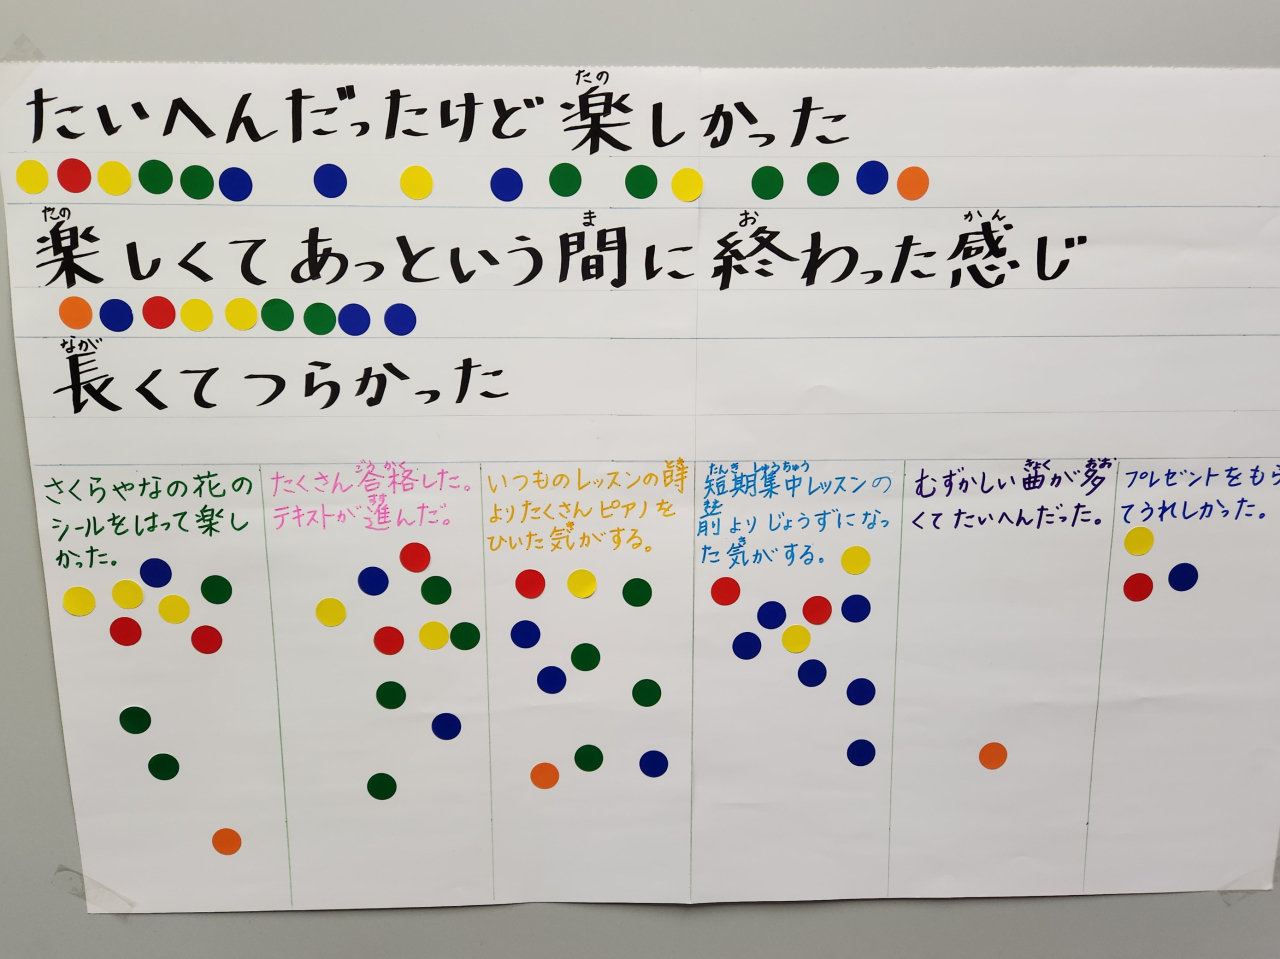 たいへんだったけど楽しかった
楽しくてあっという間に終わった感じ
長くてつらかった
さくらやなの花の
シールをはって楽し
かった。
たくさん合格した。
テキストが進んだ。
いつものレッスンの時
よりたくさんピアノを
ひいた気がする。
短期集中レッスンの
前よりじょうずになっ
た気がする。
むずかしい曲が多
くてたいへんだった。
プレゼントをもら
てうれしかった。